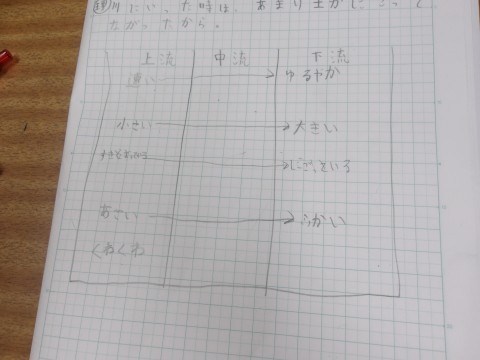 理 川にいった時は、あまり土がにごって
なかったから。
上流 中流 下流
速い → ゆるやか
小さい → 大きい
すきとおっている → にごっている
あさい → ふかい
くねくね